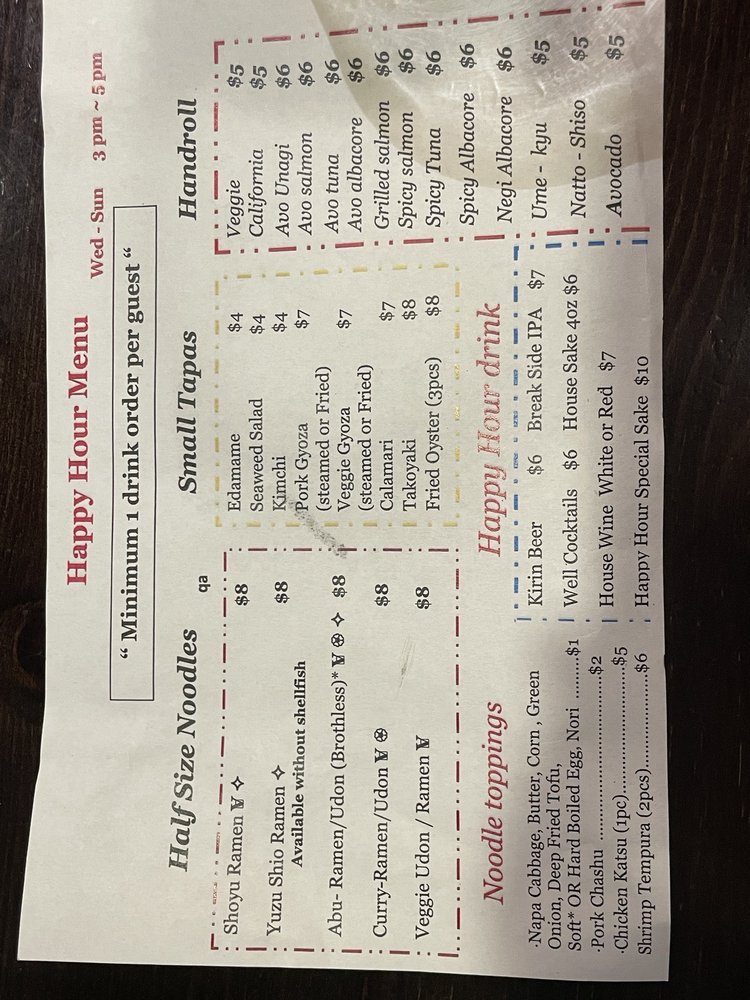 Happy Hour Menu
Wed - Sun 3 pm ~ 5 pm
“ Minimum 1 drink order per guest “
Half Size Noodles
qa
Shoyu Ramen $8
Yuzu Shio Ramen $8
Available without shellfish
Abu- Ramen/Udon (Brothless)* $8
Curry-Ramen/Udon $8
Veggie Udon / Ramen $8
Small Tapas
Edamame $4
Seaweed Salad $4
Kimchi $4
Pork Gyoza $7
(steamed or Fried)
Veggie Gyoza $7
(steamed or Fried)
Calamari $7
Takoyaki $8
Fried Oyster (3pcs) $8
Handroll
Veggie $5
California $5
Avo Unagi $6
Avo salmon $6
Avo tuna $6
Avo albacore $6
Grilled salmon $6
Spicy salmon $6
Spicy Tuna $6
Spicy Albacore $6
Negi Albacore $6
Ume - kyu $5
Natto - Shiso $5
Avocado $5
Noodle toppings
·Napa Cabbage, Butter, Corn , Green
Onion, Deep Fried Tofu,
Soft* OR Hard Boiled Egg, Nori .........$1
·Pork Chashu ................................$2
·Chicken Katsu (1pc)........................$5
Shrimp Tempura (2pcs)...................$6
Happy Hour drink
Kirin Beer $6 Break Side IPA $7
Well Cocktails $6 House Sake 4oz $6
House Wine White or Red $7
Happy Hour Special Sake $10